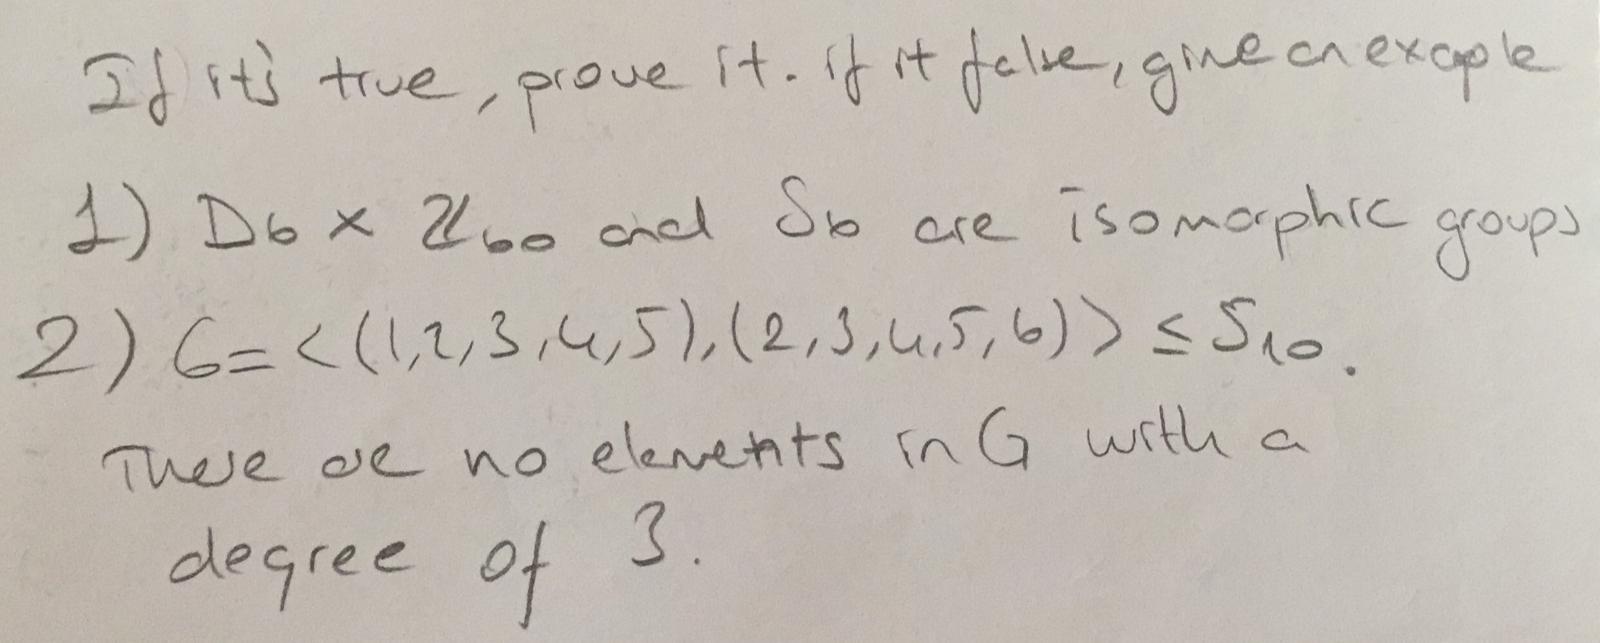 If it's true, prove it. if it false, give an exaple
1) D6 x ℤ60 and S6 are isomorphic groups
2) G=<(1,2,3,4,5),(2,3,4,5,6)> ≤ S10.
There are no elements in G with a
degree of 3.